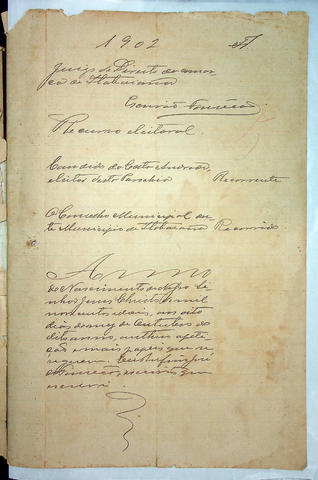 1902
Juizo de Direito da comar
ca de Itabaiana
Escrivão Fonseca
Recurso eleitoral
Candido da Costa Andrade
eleitor desta Parochia Recorrente
O Conselho Municipal des
te Municipio de Itabaiana Recorrido
Anno
do Nascimento de Nosso Se
nhor Jesus Christo de mil
novecentos e dois, aos oito
dias do mez de Outubro do
dito anno, authuo a peti
ção e mais papeis que se
seguem. Eu José
da Fonseca, escrivão que
escrevi.